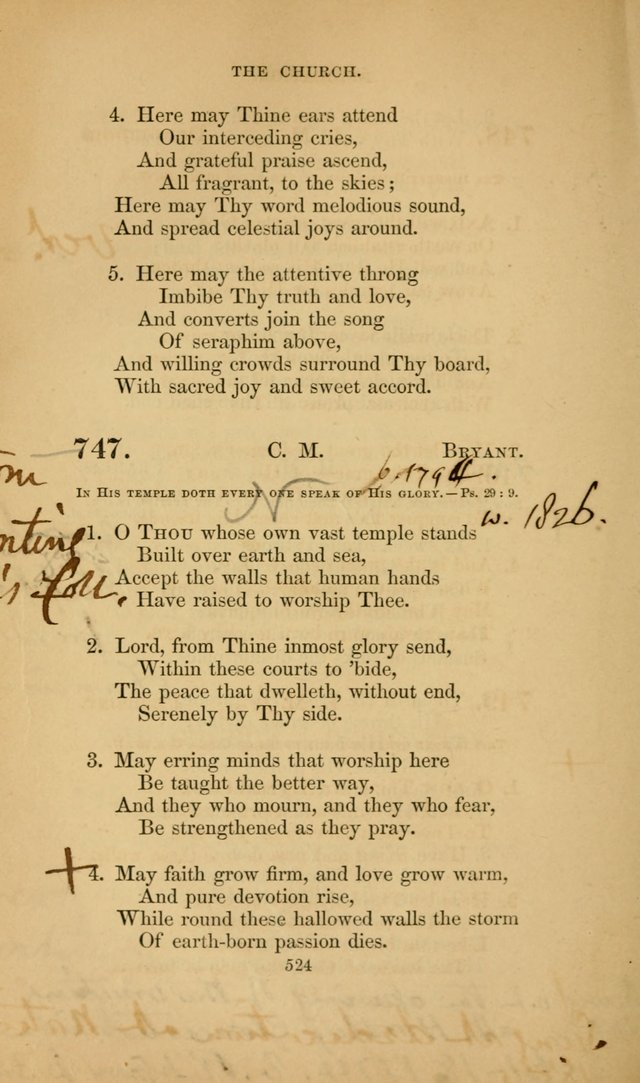 THE CHURCH.
4. Here may Thine ears attend
Our interceding cries,
And grateful praise ascend,
All fragrant, to the skies;
Here may Thy word melodious sound,
And spread celestial joys around.
5. Here may the attentive throng
Imbibe Thy truth and love,
And converts join the song
Of seraphim above,
And willing crowds surround Thy board,
With sacred joy and sweet accord.
747. C. M. BRYANT.
b. 1794.
IN HIS TEMPLE DOTH EVERY ONE SPEAK OF HIS GLORY.—Ps. 29:9.
w. 1826.
1. O THOU whose own vast temple stands
Built over earth and sea,
Accept the walls that human hands
Have raised to worship Thee.
2. Lord, from Thine inmost glory send,
Within these courts to 'bide,
The peace that dwelleth, without end,
Serenely by Thy side.
3. May erring minds that worship here
Be taught the better way,
And they who mourn, and they who fear,
Be strengthened as they pray.
+ 4. May faith grow firm, and love grow warm,
And pure devotion rise,
While round these hallowed walls the storm
Of earth-born passion dies.
524